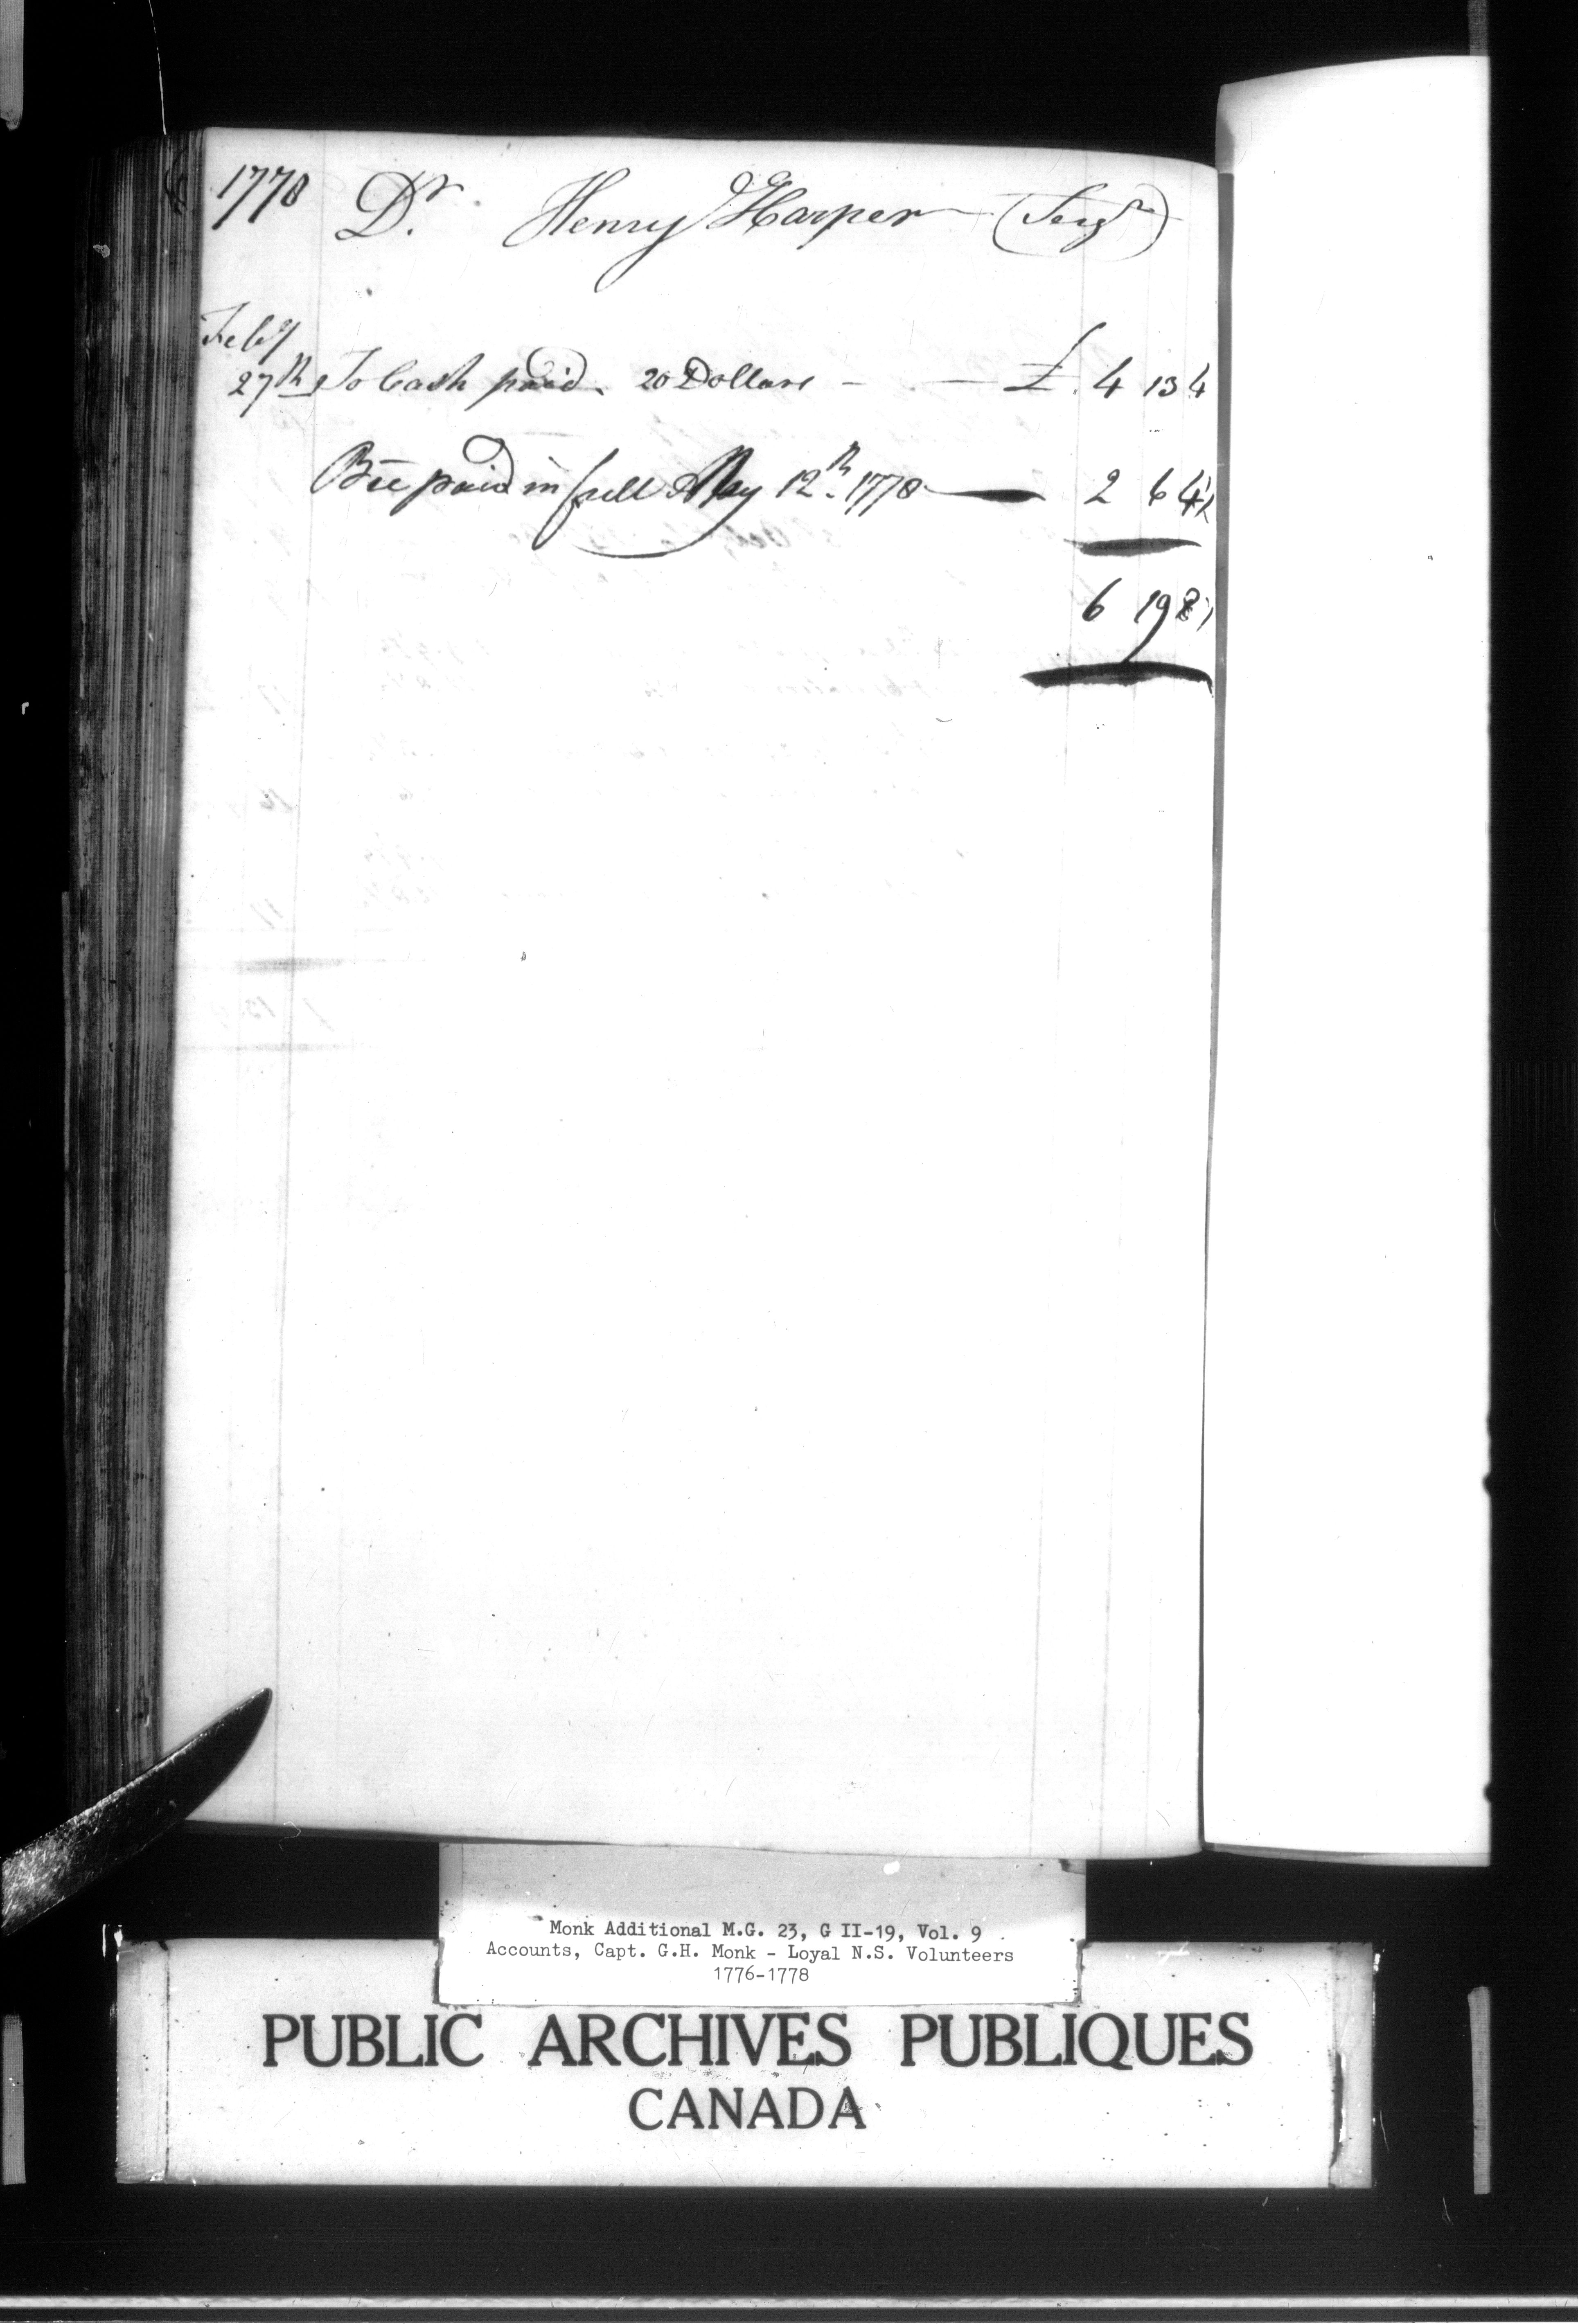 1778 Dr. Henry Harper (Serjt)
Feby
27th To Cash paid 20 Dollars — — £. 4 13 4
paid in full May 12th. 1778 — 2 6 4½
6 19 8½
Monk Additional M.G. 23, G II-19, Vol. 9
Accounts, Capt. G.H. Monk - Loyal N.S. Volunteers
1776-1778
PUBLIC ARCHIVES PUBLIQUES
CANADA